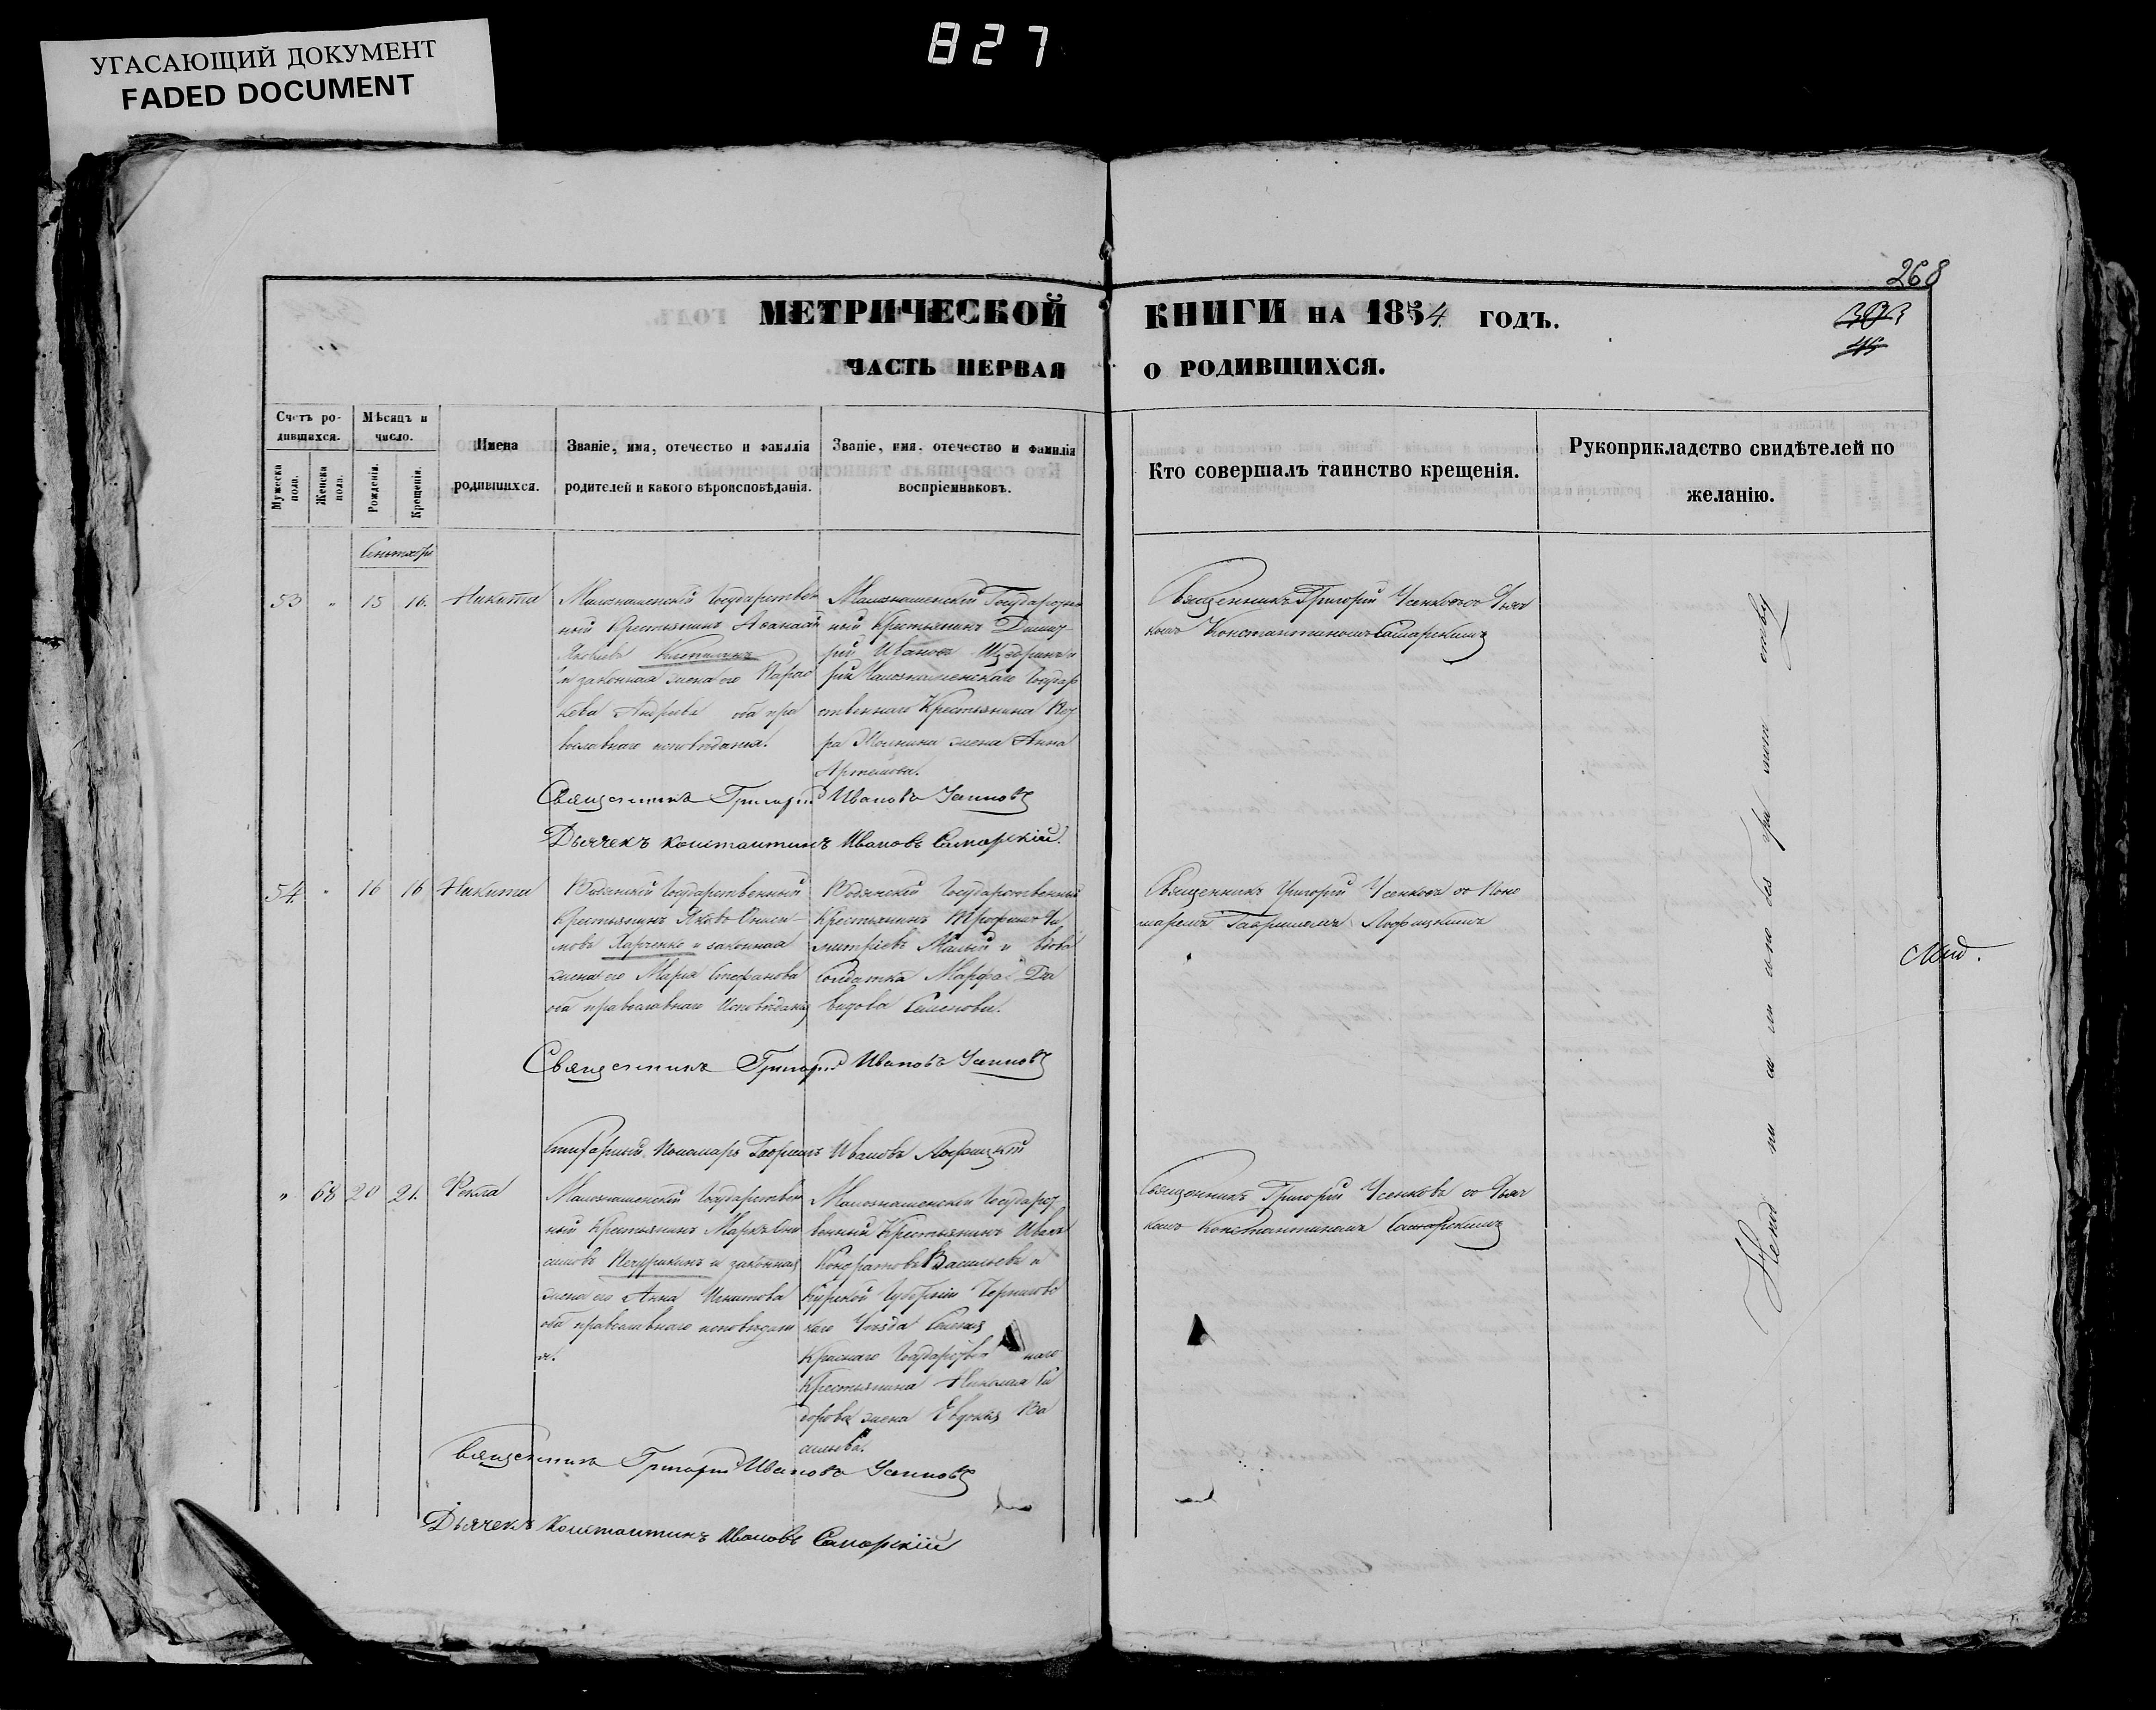 827
УГАСАЮЩИЙ ДОКУМЕНТ
FADED DOCUMENT
268
МЕТРИЧЕСКОЙ КНИГИ НА 1854 ГОДЪ.
ЧАСТЬ ПЕРВАЯ О РОДИВШИХСЯ.
Счетъ ро-
дившихся.
Мужеска пола.
Женска пола.
Мѣсяцъ и
число.
Рожденія.
Крещенія.
Имена
родившихся.
Званіе, имя, отечество и фамилія
родителей и какого вѣроисповѣданія.
Званіе, имя, отечество и фамилія
воспріемниковъ.
Кто совершалъ таинство крещенія.
Рукоприкладство свидѣтелей по
желанію.
Сентябрь
53 " 15 16. Никита
Малознаменскій Государствен
ный Крестьянинъ Афанасій
Яковлевъ
и законная жена его Парас
кева Андреева оба пра
вославнаго исповѣданія.
Малознаменскій Государствен
ный Крестьянинъ Димит
рій Ивановъ Щедринъ и
Малознаменскаго Государ
ственнаго Крестьянина
жена Анна
Артемова.
Священникъ Григорій Усенковъ со Дьяч
комъ Константиномъ Самарскимъ
Священникъ Григорій Ивановъ Усенковъ
Дьячекъ Константинъ Ивановъ Самарскій.
54 " 16 16 Никита
Водянскій Государственный
Крестьянинъ Яковъ
Харченко и законная
жена его Марія Стефанова
оба православнаго Исповѣданія
Водянскій Государственный
Крестьянинъ Трофимъ Ди
митріевъ Малый и вдова
Солдатка Марфа Да
видова Семенова.
Священникъ Григорій Усенковъ со Поно
маремъ Гавріиломъ
Священникъ Григорій Ивановъ Усенковъ
Стихарный Пономарь Гавріилъ Ивановъ
" 68 20 21. Фекла
Малознаменскій Государствен
ный Крестьянинъ Маркъ Они
симовъ и законная
жена его Анна
оба православнаго исповѣдані
я.
Малознаменскій Государст
венный Крестьянинъ Иванъ
Кондратовъ Васильевъ и
Курской Губерніи
каго Уѣзда Селенія
Краснаго Государствен наго
Крестьянина Николая Си
дорова жена Евдокія Ва
сильева.
Священникъ Григорій Усенковъ со Дьяч
комъ Константиномъ Самарскимъ
Священникъ Григорій Ивановъ Усенковъ
Дьячекъ Константинъ Ивановъ Самарскій